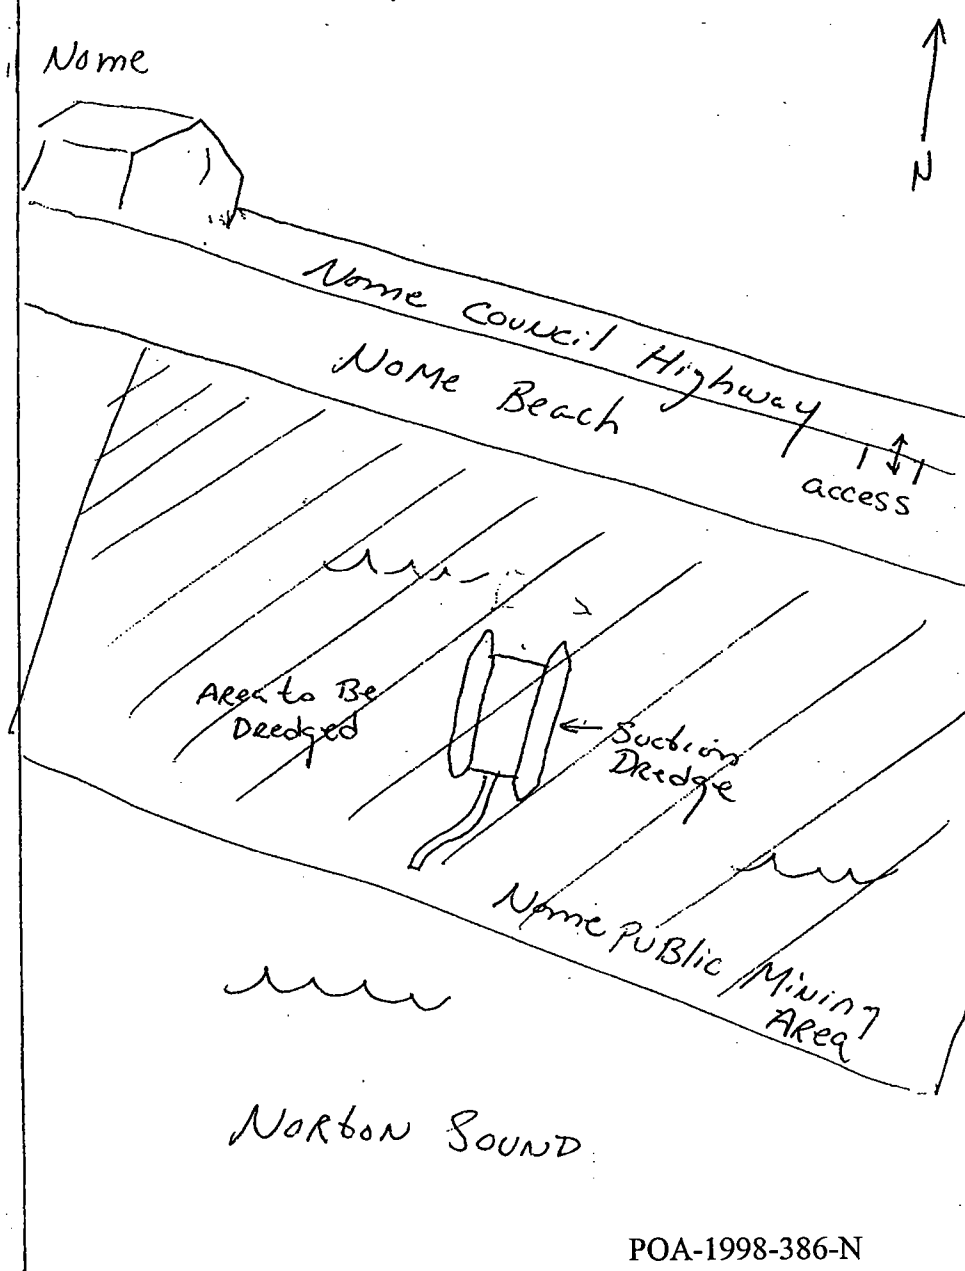 Nome
N
Nome Council Highway
Nome Beach
access
Area to Be
Dredged
Suction
Dredge
Nome Public Mining
Area
Norton Sound
POA-1998-386-N